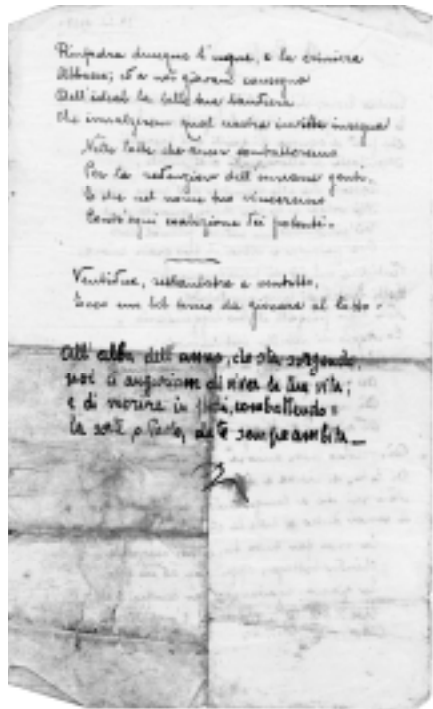 Rinfodra dunque l'ugne, e la criniera
Abbassa; ed a noi giovani consegna
Dell'ideal la bella tua bandiera
Che innalzerem qual nostra invitta insegna
Nelle lotte che ancor combatteremo
Per la redenzion dell'umana gente.
E che nel nome tuo vinceremo
Contr'ogni coalizione dei potenti.
Ventidue, settantatre e
Ecco un bel terno da giocare al lotto.
All'alba dell'anno, che sta sorgendo,
noi ti auguriam di viver la tua vita;
e di morire in piedi, combattendo:
la sorte, o da te sempre ambita_